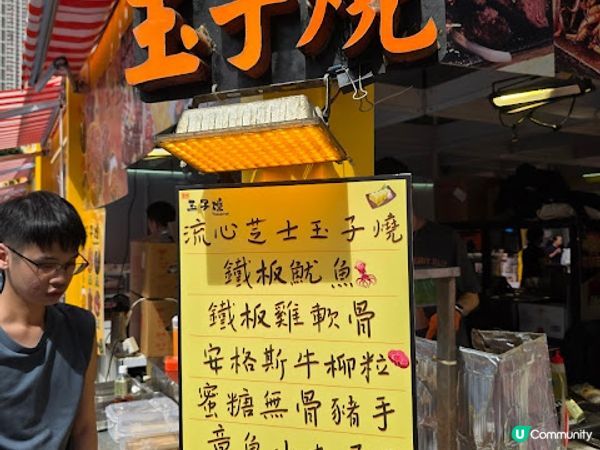 玉子燒
玉子燒
流心芝士玉子燒
鐵板魷魚
鐵板雞軟骨
安格斯牛柳粒
蜜糖無骨豬手
章魚小丸子
U Community